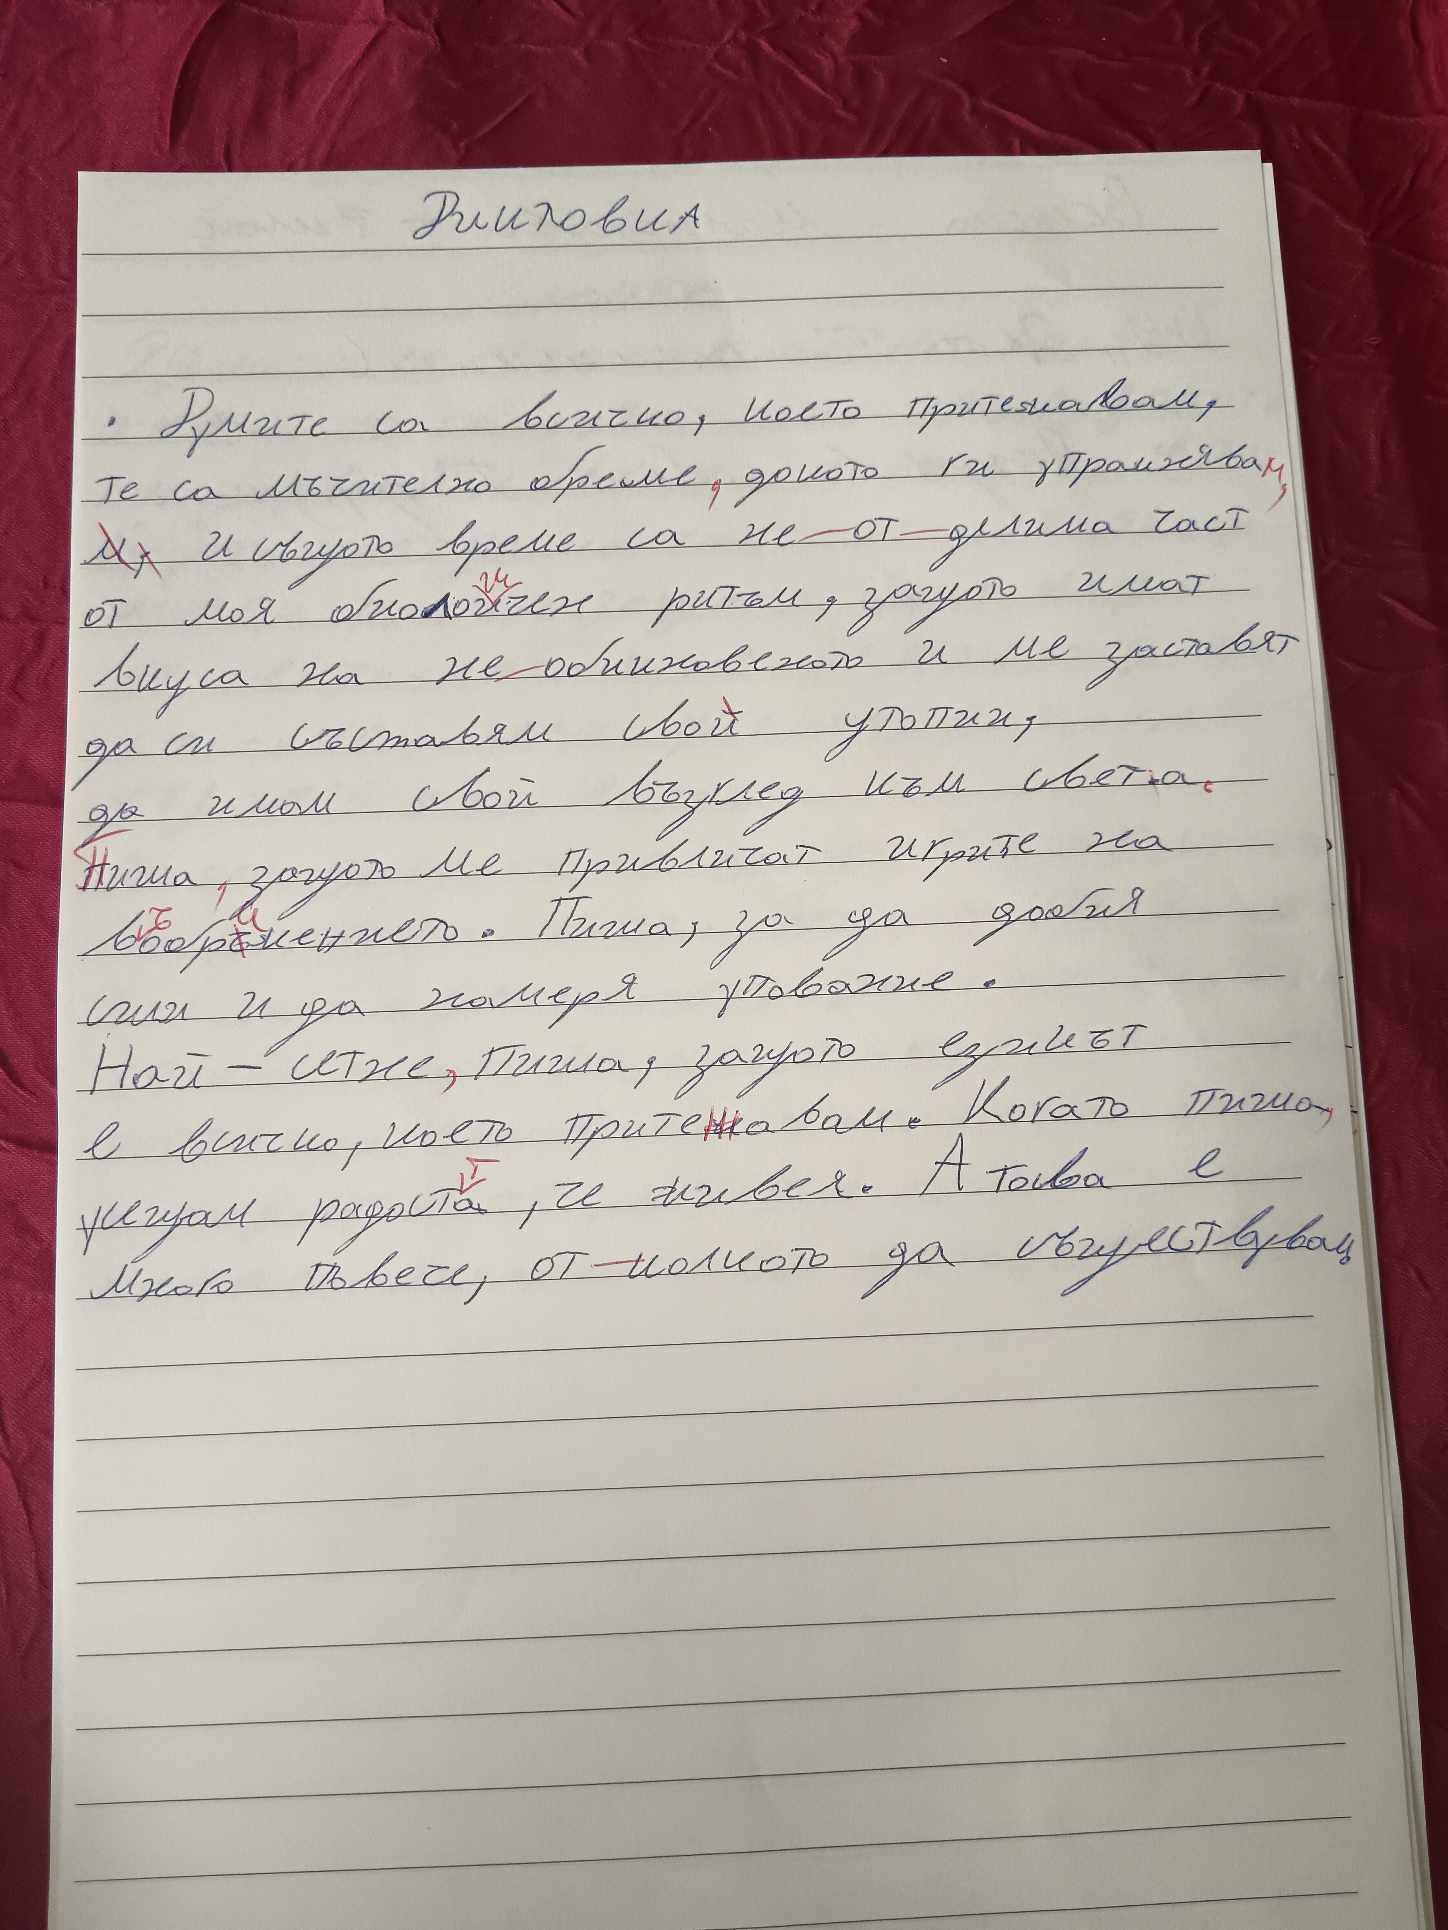 Диктовка
• Думите са всичко, което притежавам,
те са мъчително обреме, докато ги упражнявам,
м, и същото време са не-от-делима част
от моя биологичен ритъм, защото имат
вкуса на не-обикновеното и ме заставят
да си съставям свой утопии,
да имам свой възглед към света.
Пиша, защото ме привличат игрите на
въображението. Пиша, за да добия
сили и да намеря упование.
Най-сетне, пиша, защото езикът
е всичко, което притежавам. Когато пиша,
усещам радостта, че живея. А това е
много повече, от-колкото да съществуваш